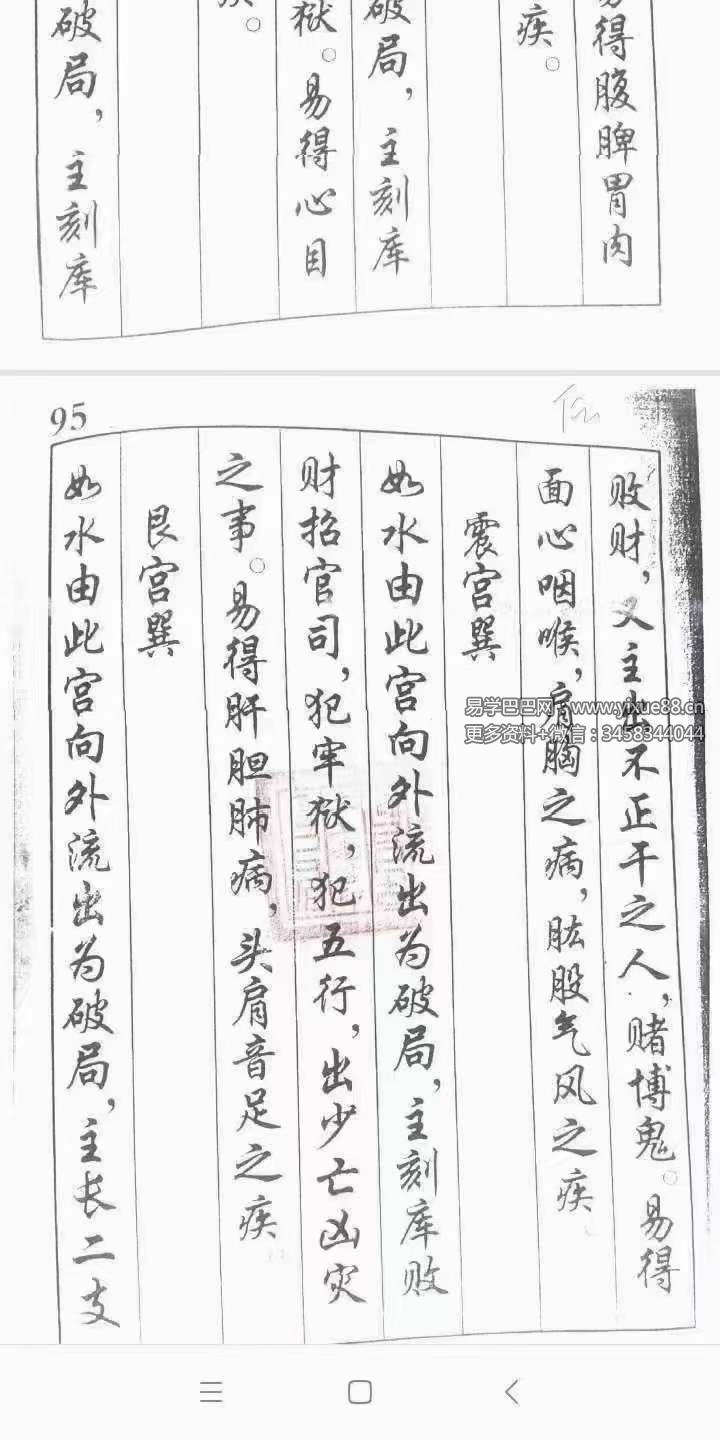 易得腹脾胃肉
疾。
破局，主刻库
狱。易得心目
疾。
破局，主刻库
95
败财，又主出不正干之人，赌博鬼。易得
面心咽喉，肩胸之病，肱股气风之疾
震宫巽
如水由此宫向外流出为破局，主刻库败
财招官司，犯牢狱，犯五行，出少亡凶灾
之事。易得肝胆肺病，头肩音足之疾
艮宫巽
如水由此宫向外流出为破局，主长二支
易学巴巴网：www.yixue88.cn
更多资料+微信：3458344044